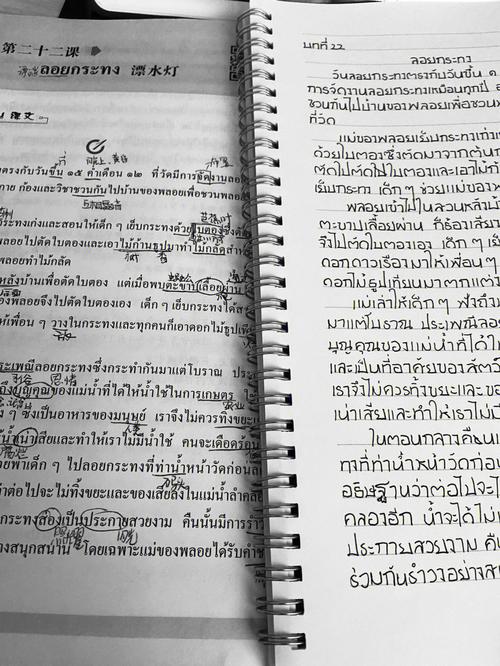 第二十二课
ลอยกระทง 漂水灯
课文
ตรงกับวันขึ้น ๑๕ ค่ำเดือน ๑๒ ที่วัดมีการจัดงานลอย
กาย ก้องและวิชาชวนกันไปบ้านของพลอยเพื่อชวนพลอย
กระทงเก่งและสอนให้เด็ก ๆ เย็บกระทงด้วยใบตองซึ่งตัด
พลอยไปตัดใบตองและเอาไม้ก้านธูปมาทำไม้กลัดสำ
พลอยทำไม้กลัด
หลังบ้านเพื่อตัดใบตอง แต่เมื่อพบตะขาบเลื้อยผ่าน
องพลอยจึงไปตัดใบตองเอง เด็ก ๆ เย็บกระทงได้ส
ห้เพื่อน ๆ วางในกระทงและทุกคนก็เอาดอกไม้ธูปเ
ระเพณีลอยกระทงซึ่งกระทำกันมาแต่โบราณ ประ
ถึงบุญคุณของแม่น้ำที่ได้ให้น้ำใช้ในการเกษตร
ง ๆ ซึ่งเป็นอาหารของมนุษย์ เราจึงไม่ควรทิ้งขยะ
น้ำเน่าเสียและทำให้เราไม่มีน้ำใช้ คนจะเดือดร้อน
อยพาเด็ก ๆ ไปลอยกระทงที่ท่าน้ำหน้าวัดก่อน
าต่อไปจะไม่ทิ้งขยะและของเสียลงในแม่น้ำลำคล
กระทงส่องเป็นประกายสวยงาม คืนนั้นมีการรำ
างสนุกสนาน โดยเฉพาะแม่ของพลอยได้รับคำช
บทที่ 22
ลอยกระทง
วันลอยกระทงตรงกับวันขึ้น ๑
การจัดงานลอยกระทงเหมือนทุกปี
ชวนกันไปบ้านของพลอยเพื่อชวนพ
ที่วัด
แม่ของพลอยเย็บกระทงเก่ง
ด้วยใบตองซึ่งตัดมาจากต้นก
ตัดไปตัดใบตองและเอาไม้ก้าน
เย็บกระทง เด็ก ๆ ช่วยแม่ของ
พลอยเข้าไปในสวนหลังบ้า
ตะขาบเลื้อยผ่าน ก็ร้องเสีย
จึงไปตัดใบตองเอง เด็ก ๆ เย็
ดอกดาวเรืองมาให้เพื่อน ๆ
ดอกไม้ธูปเทียนมาตกแต่ง
แม่เล่าให้เด็ก ๆ ฟังถึง
มาแต่โบราณ ประเพณีลอย
บุญคุณของแม่น้ำที่ได้ให้
และเป็นที่อาศัยของสัตว์
เราจึงไม่ควรทิ้งขยะและขอ
เน่าเสียและทำให้เราไม่มี
ในตอนกลางคืนแม่
ทางที่ท่าน้ำหน้าวัดก่อน
อธิษฐานว่าต่อไปจะไ
คลองอีก น้ำจะได้ไม่
ประกายสวยงาม คืน
ร่วมกันรำวงอย่างส